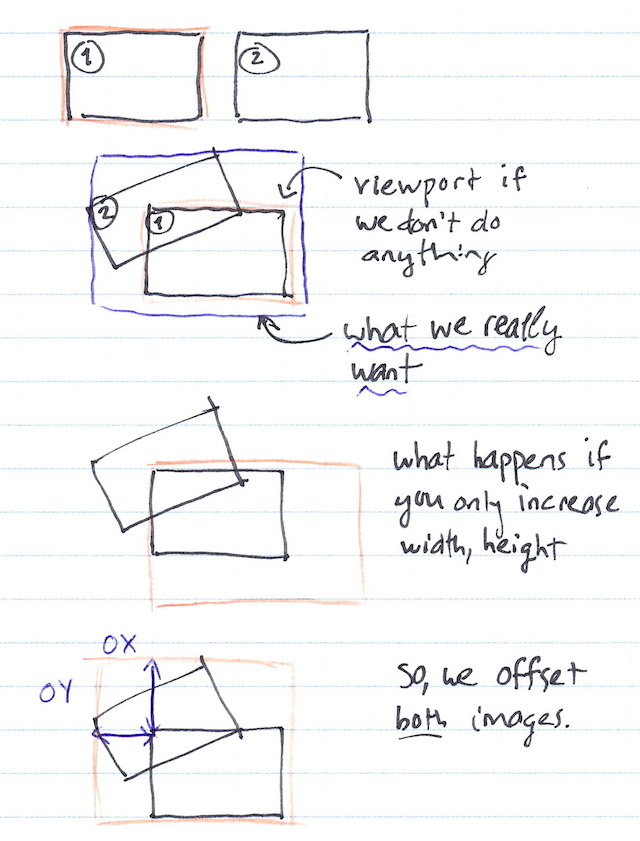 1
2
viewport if
we don't do
anything
2
1
what we really
want
what happens if
you only increase
width, height
OX
OY
So, we offset
both images.